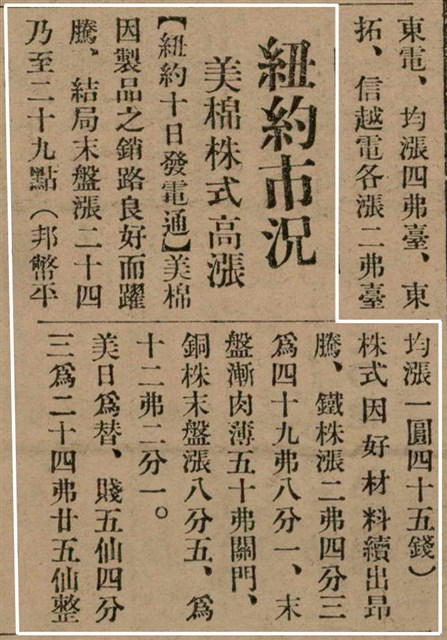 東電、均漲四弗臺、東
拓、信越電各漲二弗臺
紐約市況
美棉株式高漲
【紐約十日發電通】美棉
因製品之銷路良好而躍
騰、結局末盤漲二十四
乃至二十九點（邦幣平
均漲一圓四十五錢）
株式因好材料續出昂
騰、鐵株漲二弗四分三
爲四十九弗八分一、末
盤漸肉薄五十弗關門、
銅株末盤漲八分五、爲
十二弗二分一。
美日爲替、賤五仙四分
三爲二十四弗廿五仙整